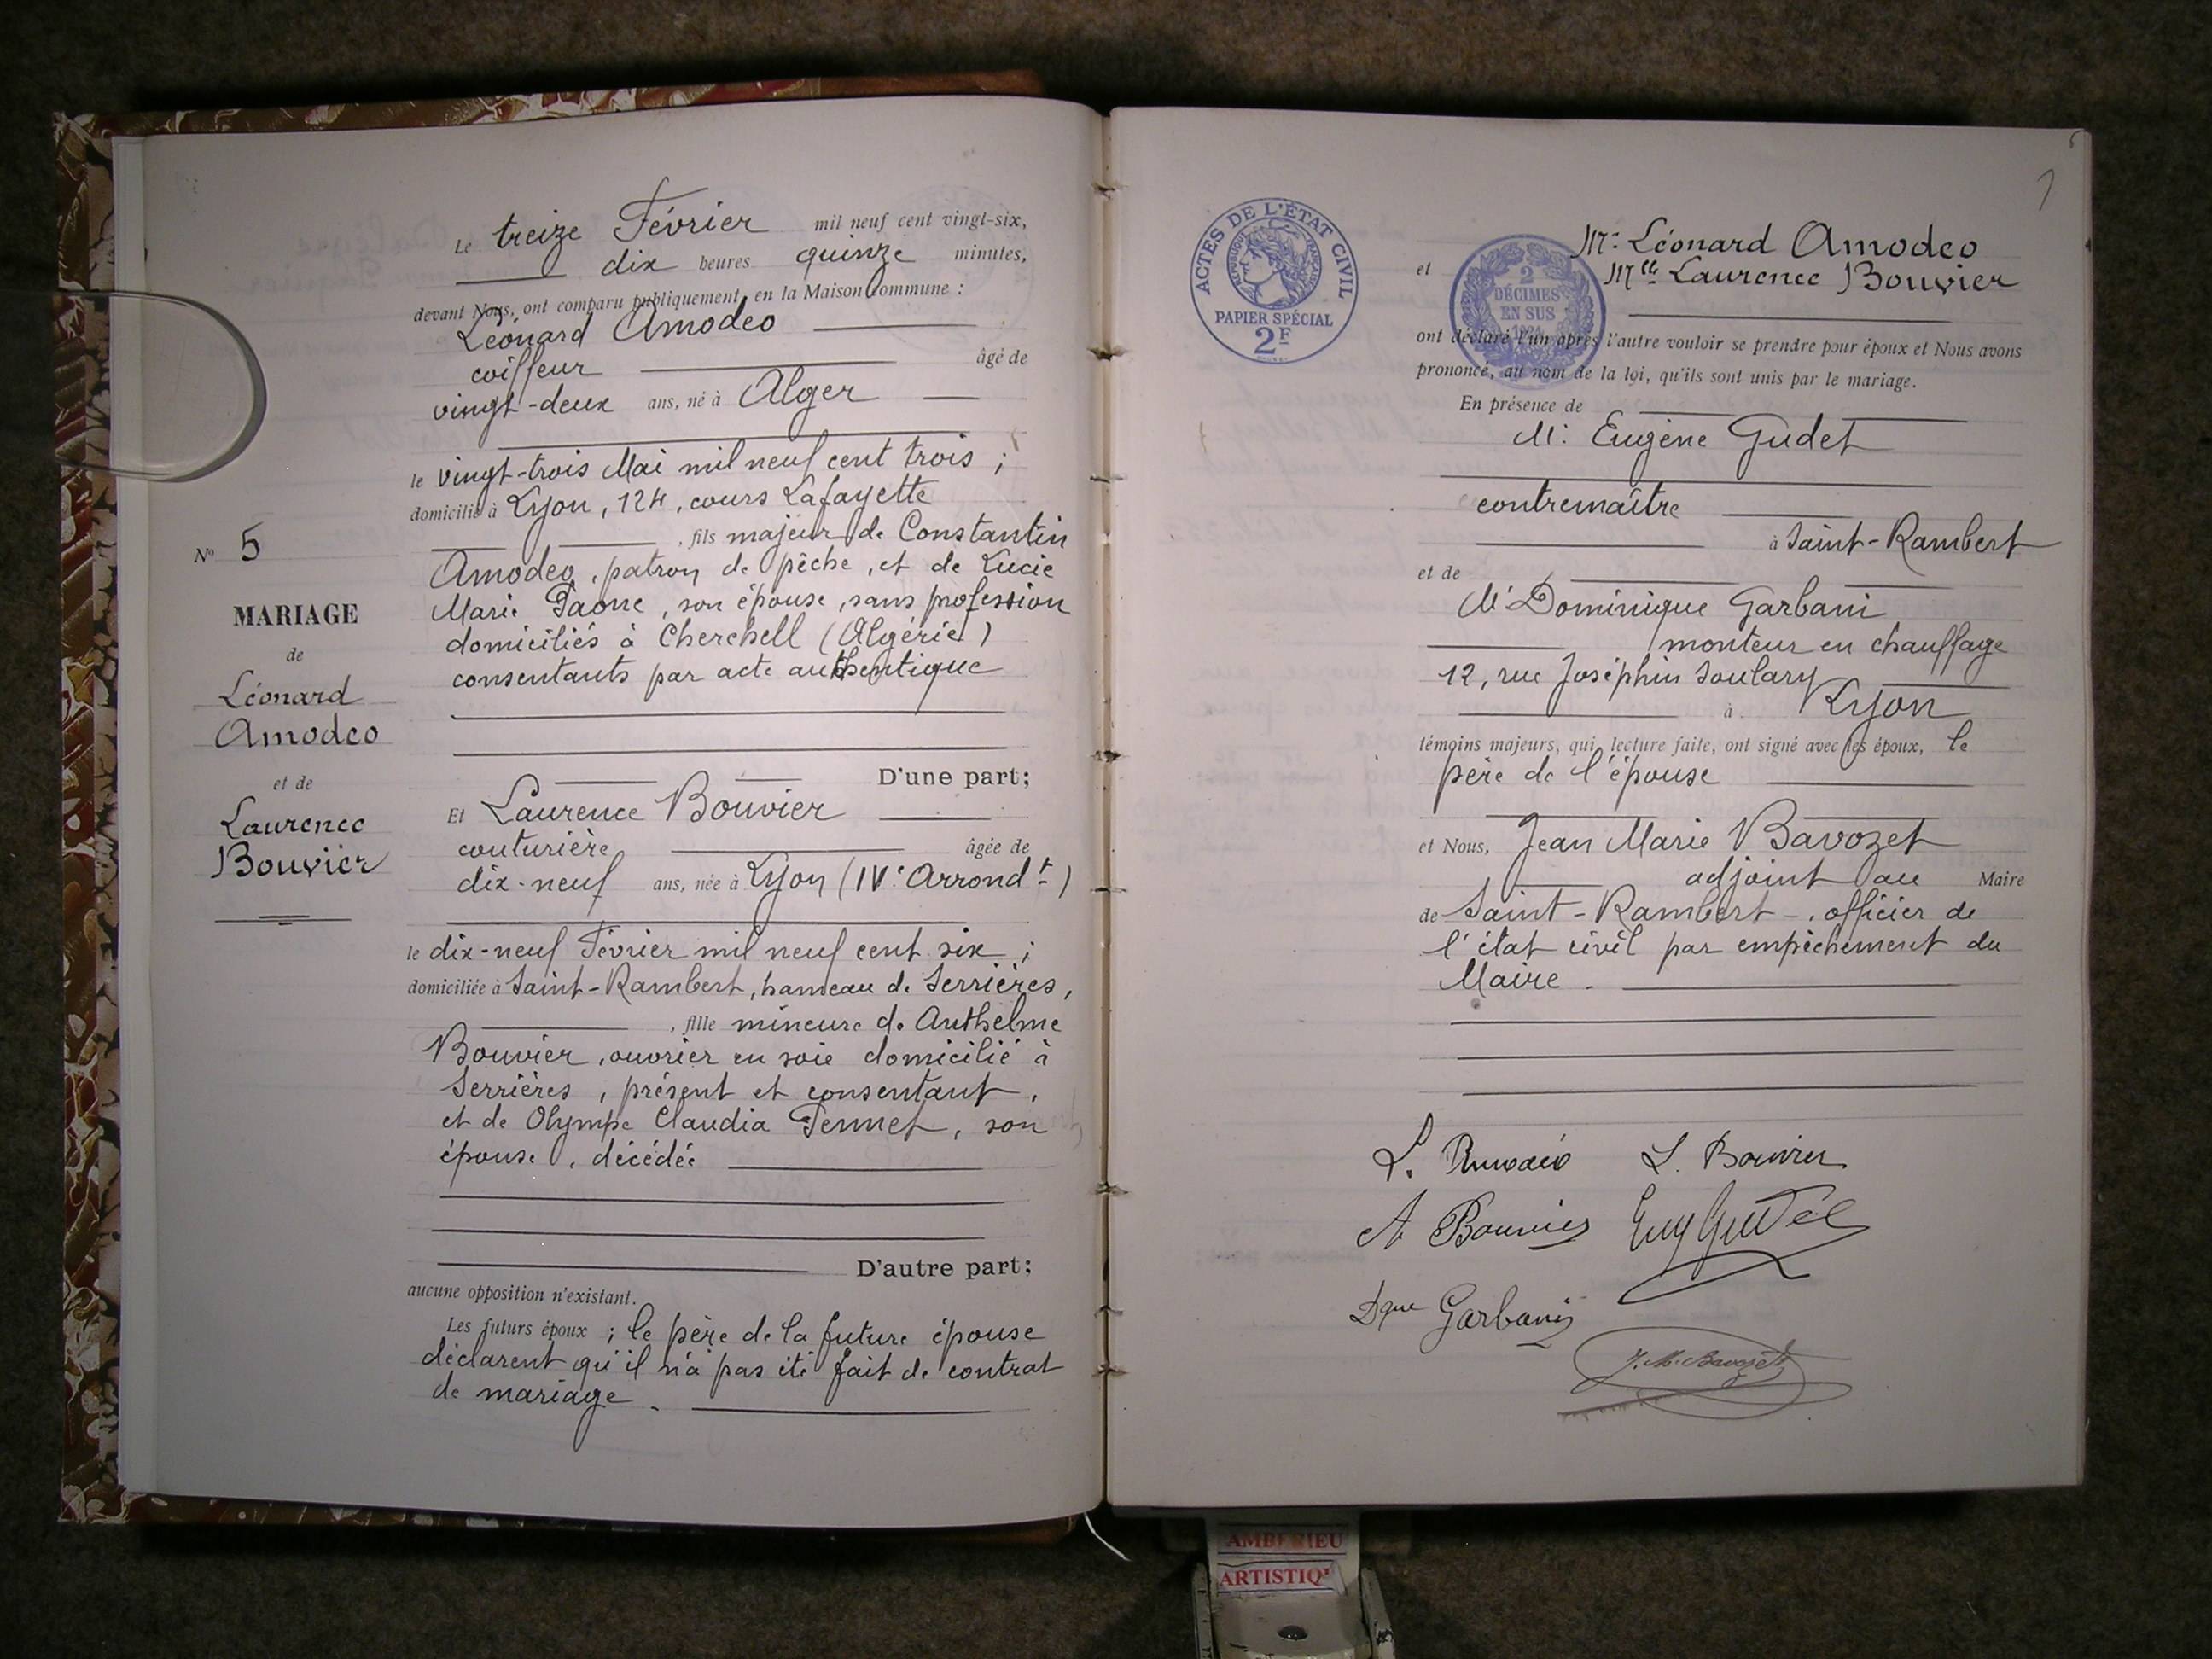 Le treize Février mil neuf cent vingt-six,
dix heures quinze minutes,
devant Nous, ont comparu publiquement en la Maison Commune :
Léonard Amodeo
coiffeur âgé de
vingt-deux ans, né à Alger
le vingt-trois Mai mil neuf cent trois ;
domicilié à Lyon, 124, cours Lafayette
, fils majeur de Constantin
Amodeo, patron de pêche, et de Lucie
Marie Paone, son épouse, sans profession
domiciliés à Cherchell (Algérie)
consentants par acte authentique
D'une part;
Et Laurence Bouvier
couturière âgée de
dix-neuf ans, née à Lyon (IVe Arrondt)
le dix-neuf Février mil neuf cent six ;
domiciliée à Saint-Rambert, hameau de Serrières,
, fille mineure de Anthelme
Bouvier, ouvrier en soie domicilié à
Serrières, présent et consentant,
et de Olympe Claudia Pennet, son
épouse, décédée
D'autre part;
aucune opposition n'existant.
Les futurs époux ; le père de la future épouse
déclarent qu'il n'a pas été fait de contrat
de mariage.
No 5
MARIAGE
de
Léonard
Amodeo
et de
Laurence
Bouvier
ACTES DE L'ÉTAT CIVIL
RÉPUBLIQUE FRANÇAISE
PAPIER SPÉCIAL
2F
2
DÉCIMES
EN SUS
Mr Léonard Amodeo
et Melle Laurence Bouvier
ont déclaré l'un après l'autre vouloir se prendre pour époux et Nous avons
prononcé, au nom de la loi, qu'ils sont unis par le mariage.
En présence de
Mr Eugène Gudet
contremaître
à Saint-Rambert
et de
Mr Dominique Garbani
monteur en chauffage
12, rue Joséphin Soulary
à Lyon
témoins majeurs, qui, lecture faite, ont signé avec les époux, le
père de l'épouse
et Nous, Jean Marie Bavozet
adjoint au Maire
de Saint-Rambert, officier de
l'état civil par empêchement du
Maire.
L. Amodéo L. Bouvier
A Bouvier Eug Gudet
Dque Garbani
J. M. Bavozet
AMBERIEU
ARTISTIQ